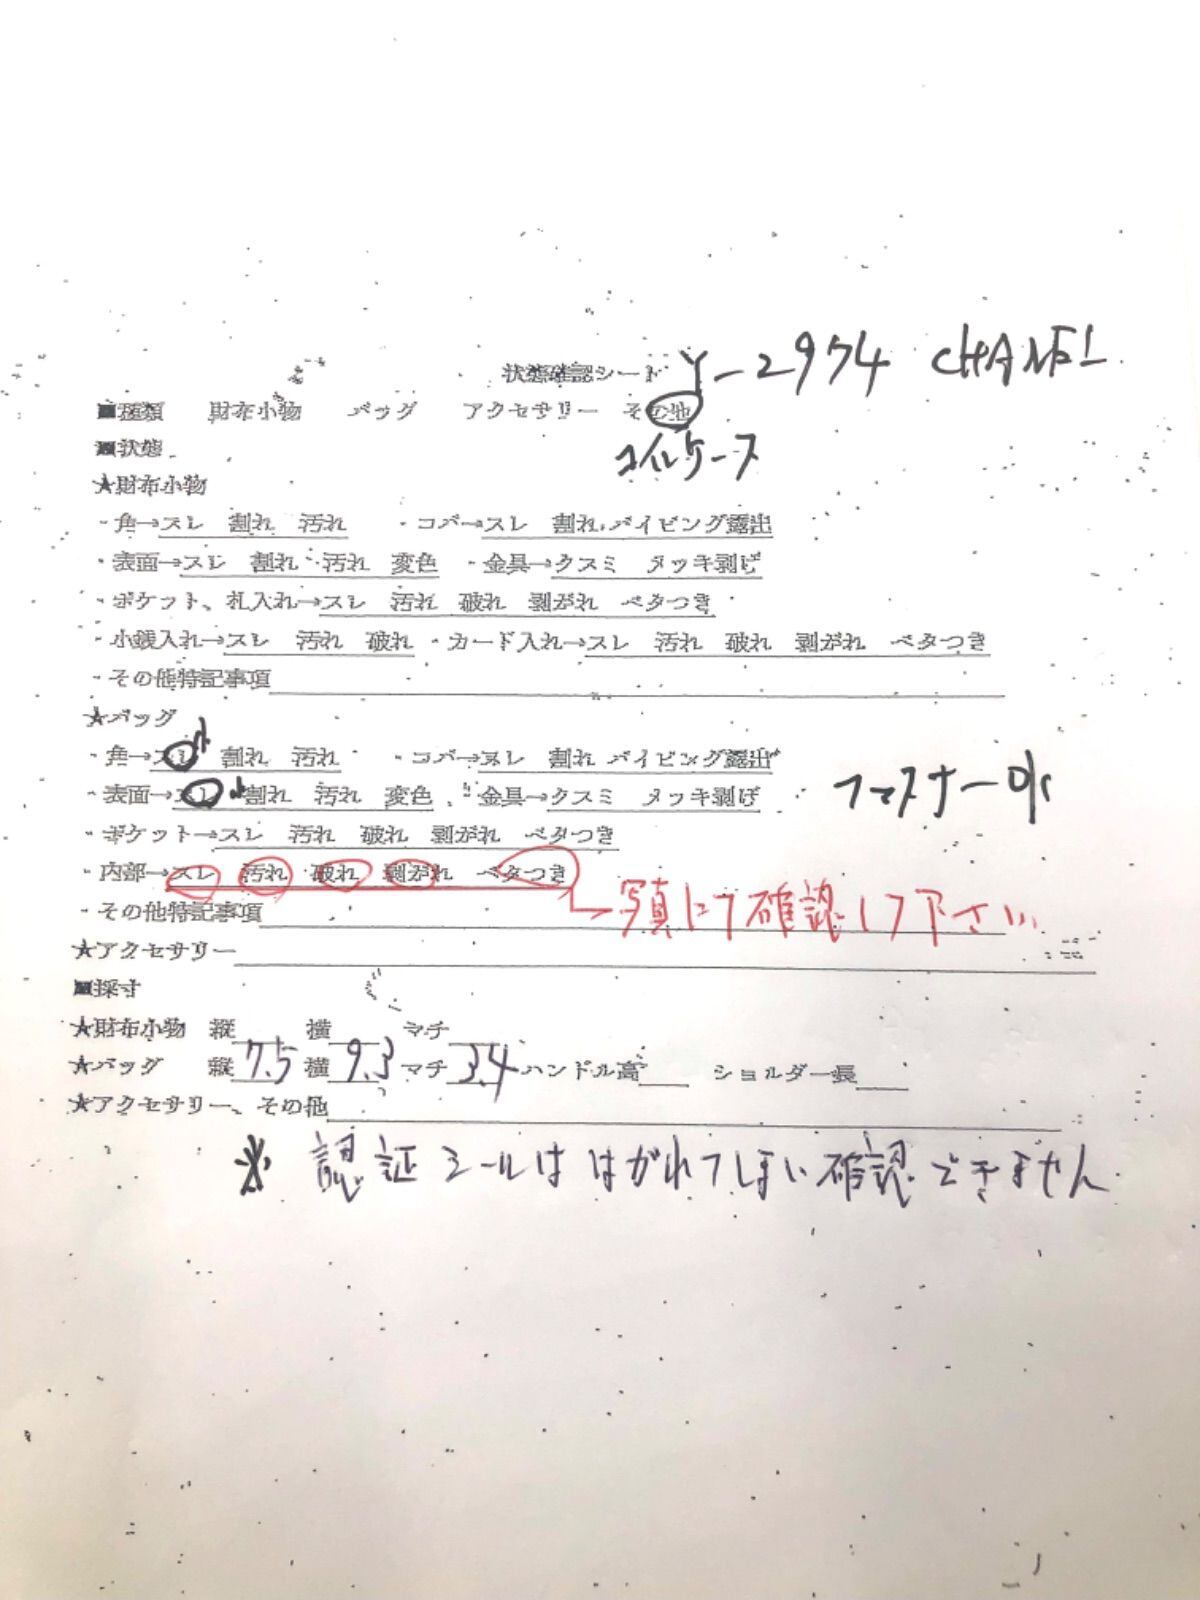 状態確認シート Y-2974 CHANEL
■種類 財布小物 バッグ アクセサリー その他
コインケース
■状態
★財布小物
・角→スレ 割れ 汚れ ・コバ→スレ 割れ パイピング露出
・表面→スレ 割れ 汚れ 変色 ・金具→クスミ メッキ剥げ
・ポケット、札入れ→スレ 汚れ 破れ 剥がれ ベタつき
・小銭入れ→スレ 汚れ 破れ ・カード入れ→スレ 汚れ 破れ 剥がれ ベタつき
・その他特記事項
★バッグ
・角→スレ小 割れ 汚れ ・コバ→スレ 割れ パイピング露出
・表面→スレ小 割れ 汚れ 変色 ・金具→クスミ メッキ剥げ
ファスナーOK
・ポケット→スレ 汚れ 破れ 剥がれ ベタつき
・内部→スレ 汚れ 破れ 剥がれ ベタつき
写真にて確認して下さい
・その他特記事項
★アクセサリー
■採寸
★財布小物 縦 横 マチ
★バッグ 縦7.5 横9.3 マチ3.4 ハンドル高 ショルダー長
★アクセサリー、その他
※ 認証シールははがれてしまい確認できません